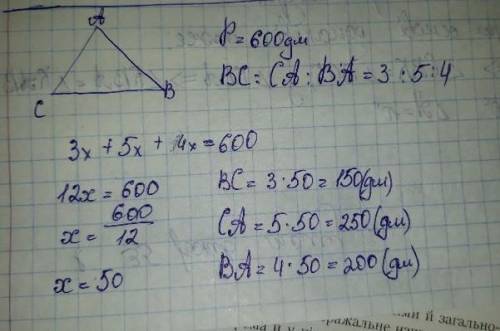 A
C
B
P = 600 дм
BC : CA : BA = 3 : 5 : 4
3x + 5x + 4x = 600
12x = 600
x = 600/12
x = 50
BC = 3 · 50 = 150 (дм)
CA = 5 · 50 = 250 (дм)
BA = 4 · 50 = 200 (дм)
й загально-